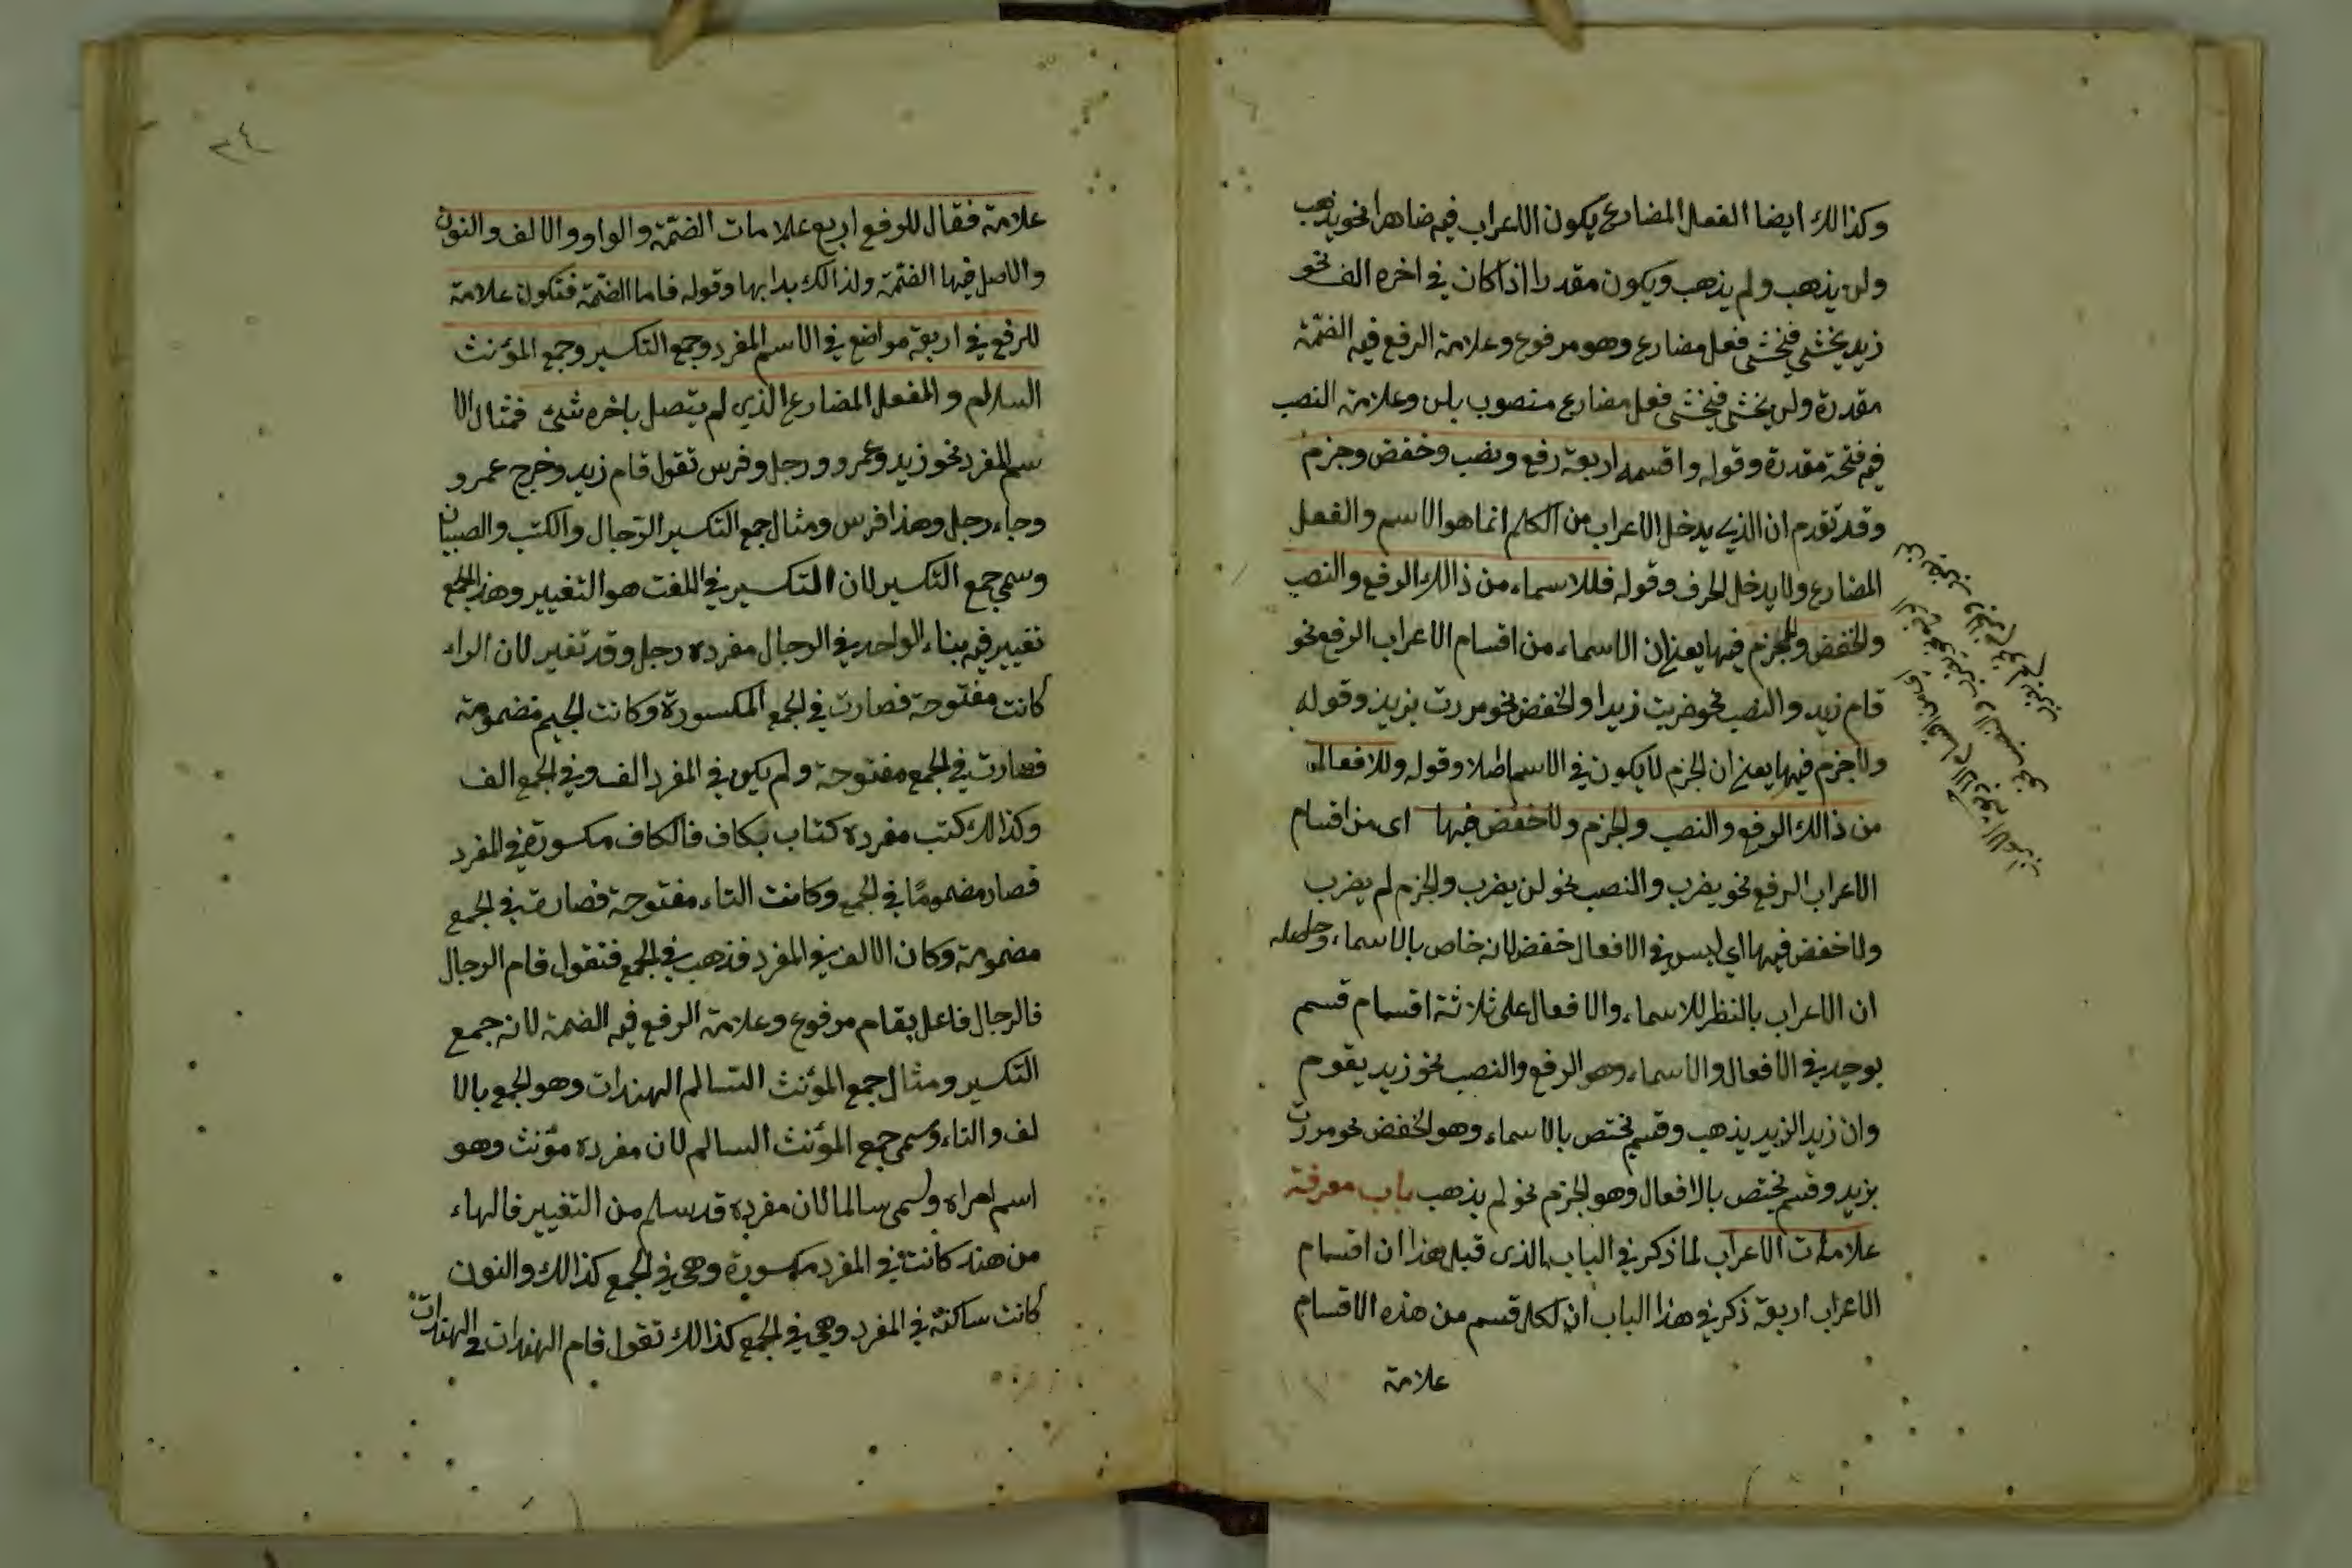 وكذالك ايضا الفعل المضارع يكون الاعراب فيه ضاهرا نحو يذهب
ولن يذهب ولم يذهب ويكون مقدرا اذا كان في اخره الف نحو
زيد يخشى فيخشى فعل مضارع وهو مرفوع وعلامة الرفع فيه الضمّة
مقدرة ولن يخشى فيخشى فعل مضارع منصوب بلن وعلامة النصب
فيه فتحة مقدرة وقوله واقسمه اربعة رفع ونصب وخفض وجزم
وقد تقدم ان الذي يدخل الاعراب من الكلم انما هو الاسم والفعل
المضارع ولا يدخل الحرف وقوله فللاسماء من ذالك الرفع والنصب
والخفض ولا جزم فيها يعني ان الاسماء من اقسام الاعراب الرفع نحو
قام زيد والنصب نحو ضربت زيدا والخفض نحو مررت بزيد وقوله
ولا جزم فيها يعني ان الجزم لا يكون في الاسم اصلا وقوله وللافعال
من ذالك الرفع والنصب والجزم ولا خفض فيها اى من اقسام
الاعراب الرفع نحو يضرب والنصب نحو لن يضرب والجزم لم يضرب
ولا خفض فيها اي ليس في الافعال خفض لانه خاص بالاسماء وحاصله
ان الاعراب بالنظر للاسماء والافعال على ثلاثة اقسام قسم
يوجد في الافعال والاسماء وهو الرفع والنصب نحو زيد يقوم
وان زيدا لزيد يذهب وقسم يختص بالاسماء وهو الخفض نحو مررت
بزيد وقسم يختص بالافعال وهو الجزم نحو لم يذهب باب معرفة
علامات الاعراب لما ذكر في الباب الذى قبل هذا ان اقسام
الاعراب اربعة ذكر في هذا الباب ان لكل قسم من هذه الاقسام
علامة
٣٤
علامة فقال للرفع اربع علامات الضمّة والواو والالف والنون
والاصل فيها الضمّة ولذالك بدا بها وقوله فاما الضمّة فتكون علامة
للرفع في اربعة مواضع في الاسم المفرد وجمع التكسير وجمع المؤنث
السالم والفعل المضارع الذي لم يتصل باخره شئ فمثال الا
سم المفرد نحو زيد وعمرو ورجل وفرس تقول قام زيد وخرج عمرو
وجاء رجل وهذا فرس ومثال جمع التكسير الرّجال والكتب والصبيان
وسمي جمع التكسير لان التكسير في اللغت هو التغيير وهذا الجمع
تغيير فيه بناء الواحد في الرجال مفرده رجل وقد تغير لان الراء
كانت مفتوحة فصارت في الجمع المكسورة وكانت الجيم مضمومة
فصارت في الجمع مفتوحة ولم يكن في المفرد الف وفي الجمع الف
وكذالك كتب مفرده كتاب بكاف فالكاف مكسورة في المفرد
فصار مضمومًا في الجمع وكانت التاء مفتوحة فصارت في الجمع
مضمومة وكان الالف في المفرد فذهب في الجمع فتقول قام الرجال
فالرجال فاعل بقام مرفوع وعلامة الرفع فيه الضمة لانه جمع
التكسير ومثال جمع المؤنث السّالم الهندات وهو الجمع بالا
لف والتاء وسمى جمع المؤنث السالم لان مفرده مؤنث وهو
اسم امراه وسمى سالما لان مفرده قد سلم من التغيير فالهاء
من هند كانت في المفرد مكسورة وهى في الجمع كذالك والنون
كانت ساكنة في المفرد وهي في الجمع كذالك تقول قام الهندات فالهندات